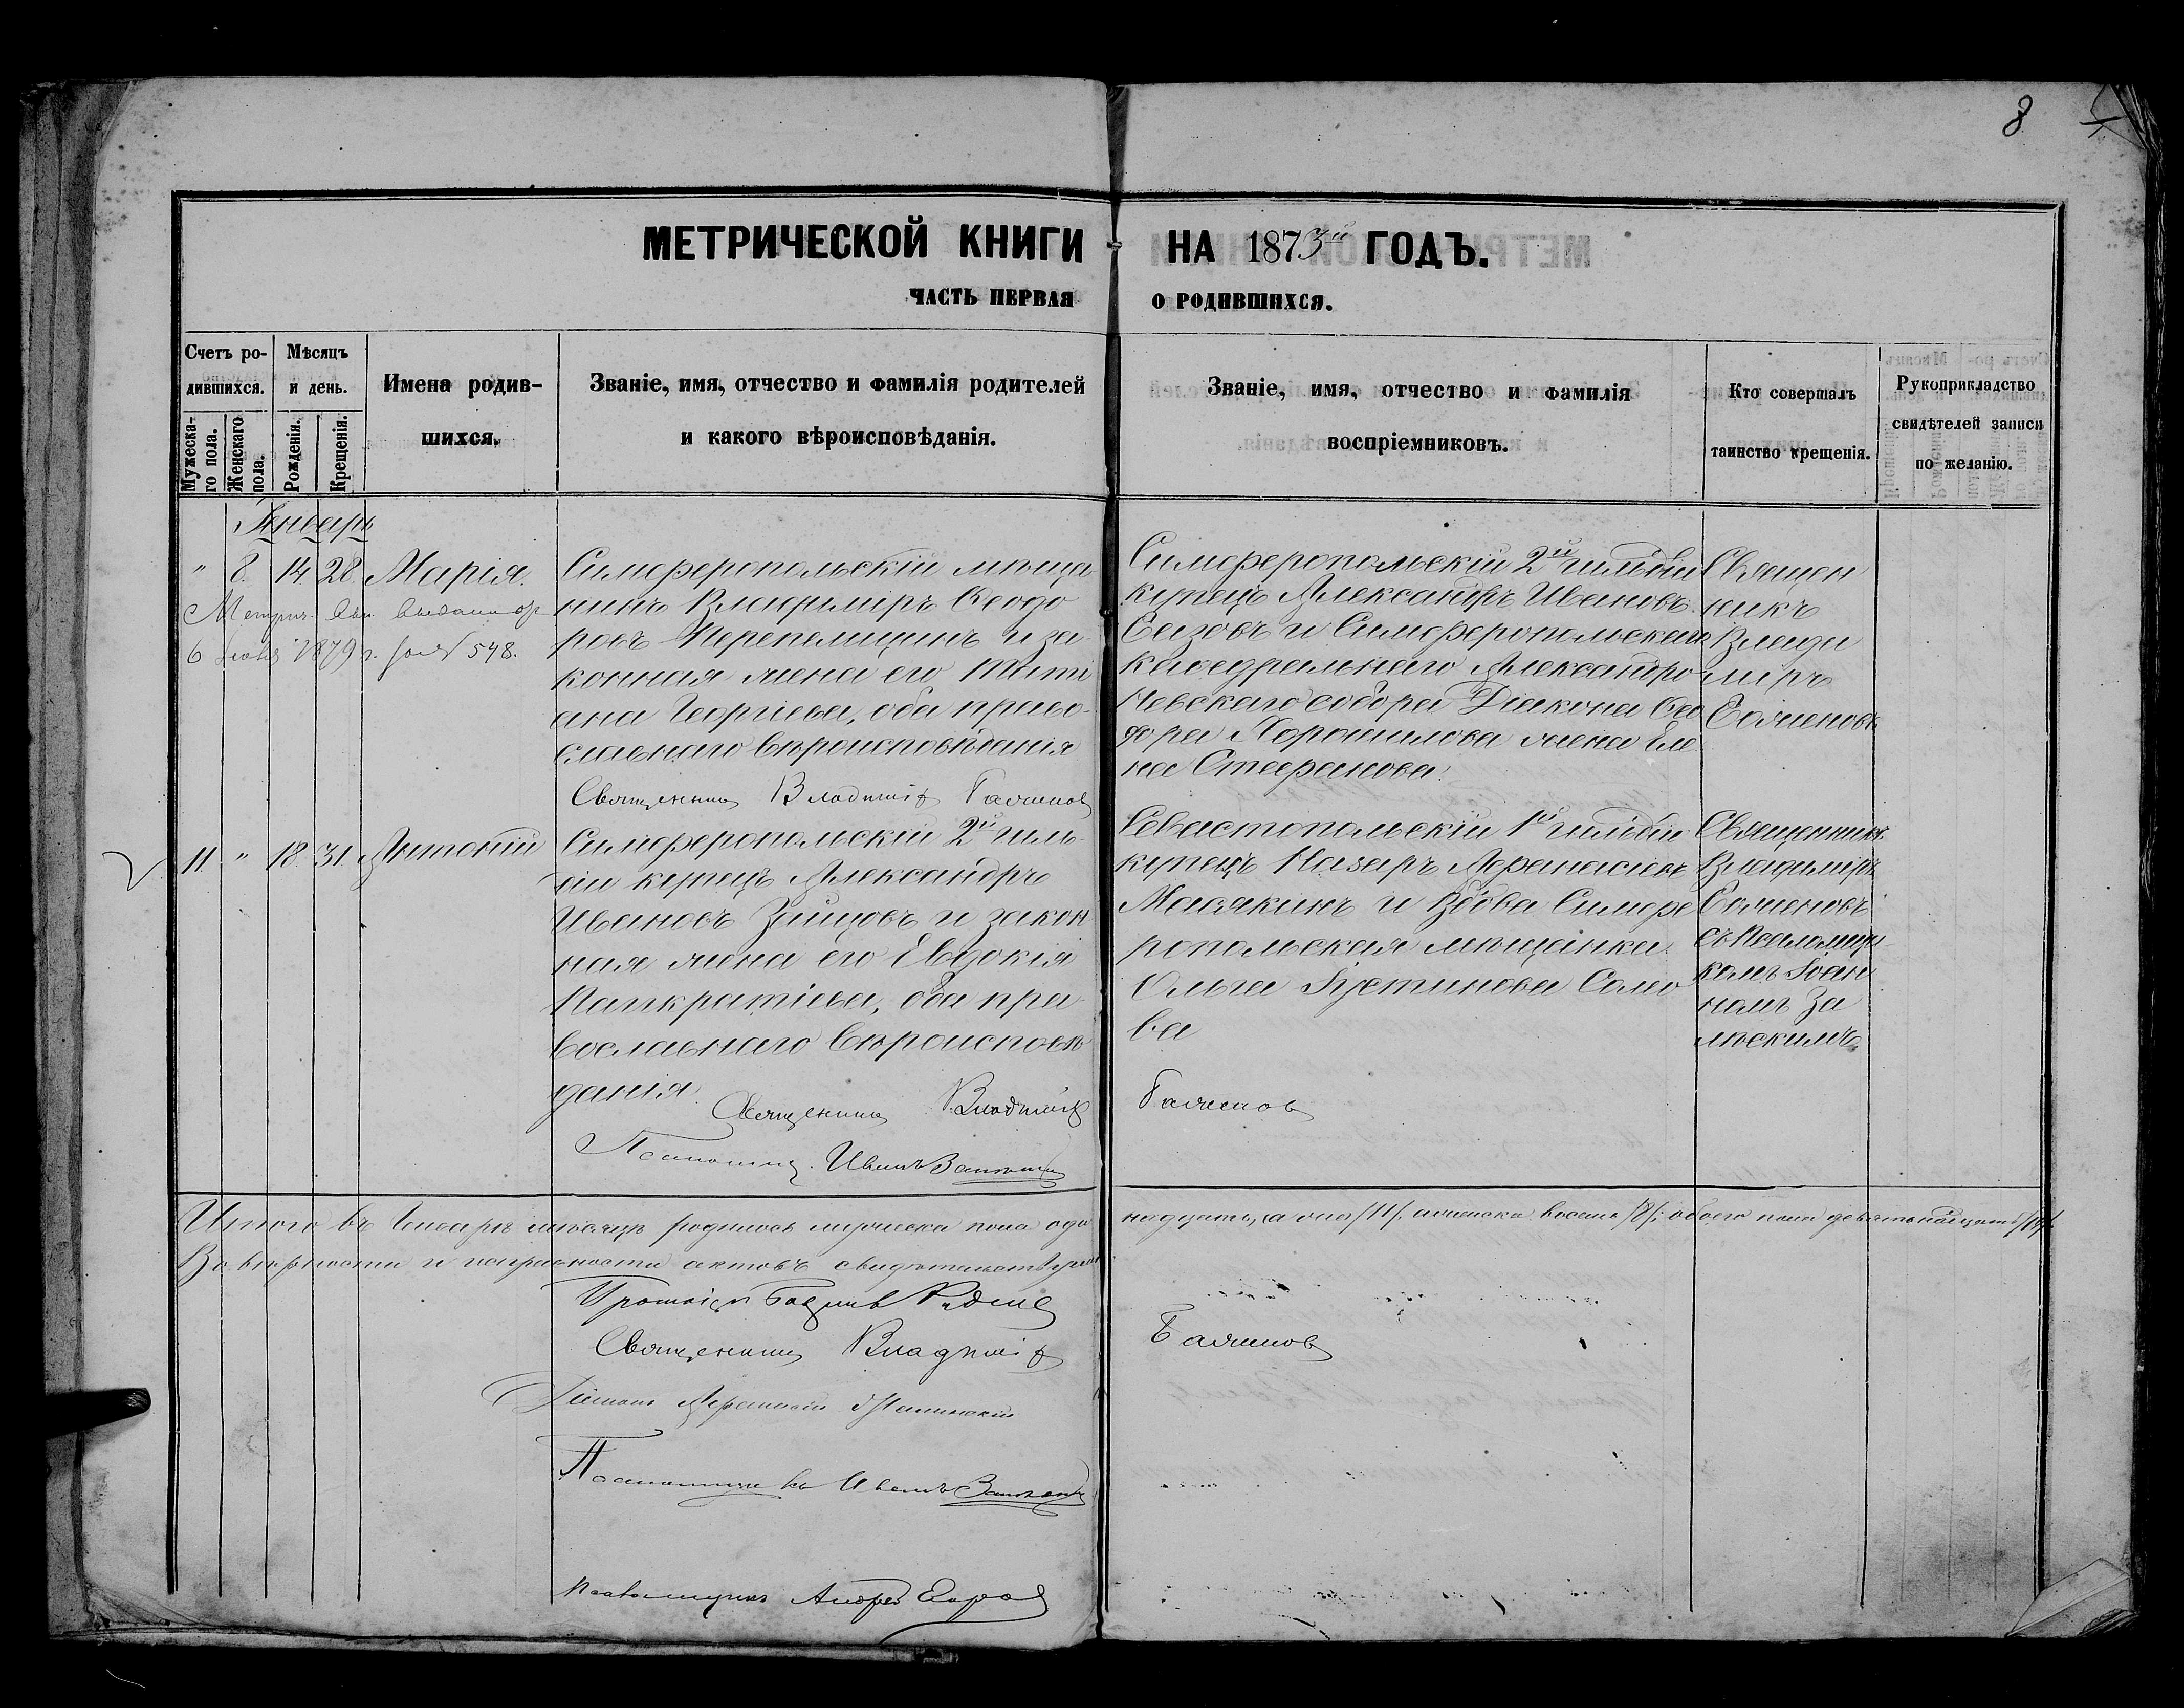 8
МЕТРИЧЕСКОЙ КНИГИ НА 1873й ГОДЪ.
ЧАСТЬ ПЕРВАЯ О РОДИВШИХСЯ.
Счетъ ро-
дившихся.
Мужеска-
го пола.
Женскаго
пола.
Мѣсяцъ
и день.
Рожденія.
Крещенія.
Имена родив-
шихся.
Званіе, имя, отчество и фамилія родителей
и какого вѣроисповѣданія.
Званіе, имя, отчество и фамилія
воспріемниковъ.
Кто совершалъ
таинство крещенія.
Рукоприкладство
свидѣтелей записи
по желанію.
Генварь
" 8. 14 28 Марія.
Метрич.
6 1879 г. 548.
Симферопольскій мѣща
нинъ Владиміръ Ѳеодо
ровъ Перепелицинъ и за
конная жена его Тати
ана Георгіева, оба право-
славнаго вѣроисповѣданія
Священникъ Владиміръ Баженовъ
Симферопольскій 2й гильдіи
купецъ Александръ Ивановъ
и Симферопольскаго
каѳедральнаго Александро
Невскаго собора Діакона Ѳео
дора Хорошилова жена Еле
на Стефанова.
Священ
никъ
Влади
міръ
Баженовъ
11 " 18 31 Антоній
Симферопольскій 2й гиль
діи купецъ Александръ
Ивановъ Зайцовъ и закон
ная жена его Евдокія
Панкратіева, оба пра
вославнаго вѣроисповѣ
данія.
Священникъ Владиміръ Баженовъ
Псаломщикъ Иванъ
Севастопольскій 1й гильдіи
купецъ Назаръ Афанасіевъ
и Вдова Симфе
ропольская мѣщанка
Ольга Іустинова Соло
ва
Священникъ
Владиміръ
Баженовъ
съ Псаломщи
комъ Іоан
номъ За
лѣскимъ
Итого въ Генварѣ мѣсяцѣ родилось мужеска пола оди
надцать, а оно /11/, женска восемь /8/, обоего пола девятнадцать /19/.
Въ вѣрности и исправности актовъ свидѣтельствуемъ
Протоіерей
Священникъ Владиміръ Баженовъ
Діаконъ
Псаломщикъ Иванъ
Псаломщикъ Андрей